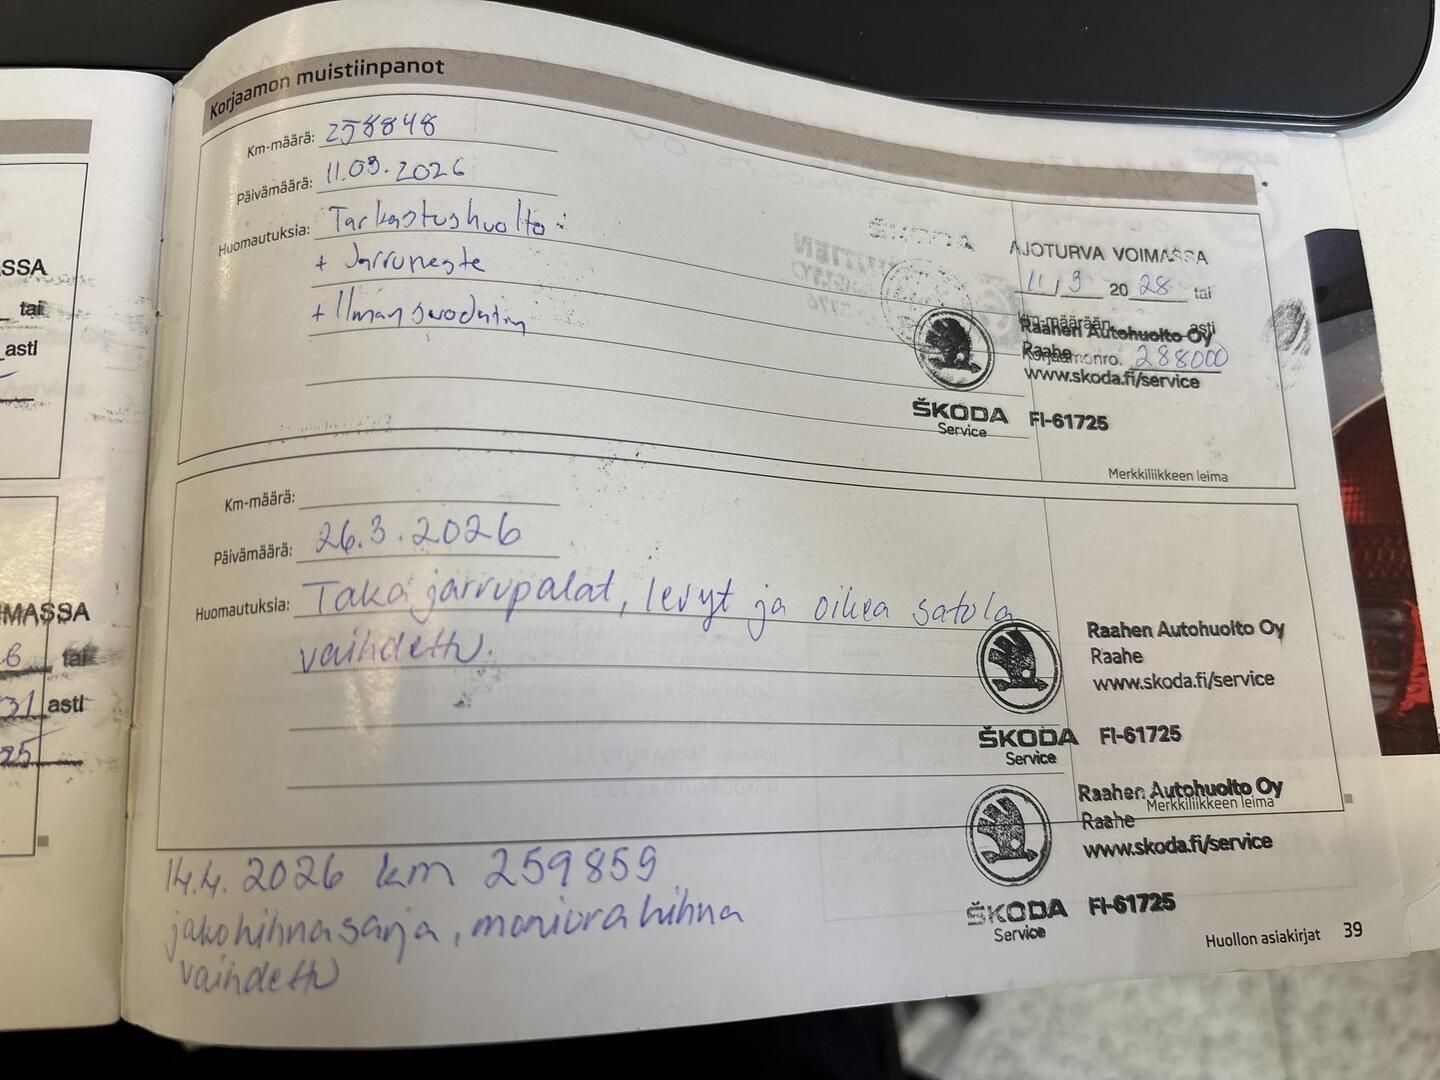 Korjaamon muistiinpanot
Km-määrä: 258848
Päivämäärä: 11.03.2026
Huomautuksia: Tarkastushuolto
+ Jarruneste
+ Ilmansuodatin
AJOTURVA VOIMASSA
11/3 2028 tai
km-määrään asti
Raahen Autohuolto Oy
Raahe
Korjaamonro. 288000
www.skoda.fi/service
ŠKODA FI-61725
Service
Merkkiliikkeen leima
Km-määrä:
Päivämäärä: 26.3.2026
Huomautuksia: Takajarrupalat, levyt ja oikea satula
vaihdettu.
Raahen Autohuolto Oy
Raahe
www.skoda.fi/service
ŠKODA FI-61725
Service
Merkkiliikkeen leima
Raahen Autohuolto Oy
Raahe
www.skoda.fi/service
ŠKODA FI-61725
Service
14.4.2026 km 259859
jakohihnasarja, moniurahihna
vaihdettu
Huollon asiakirjat 39
SSA
tai
asti
MASSA
tai
31 asti
25